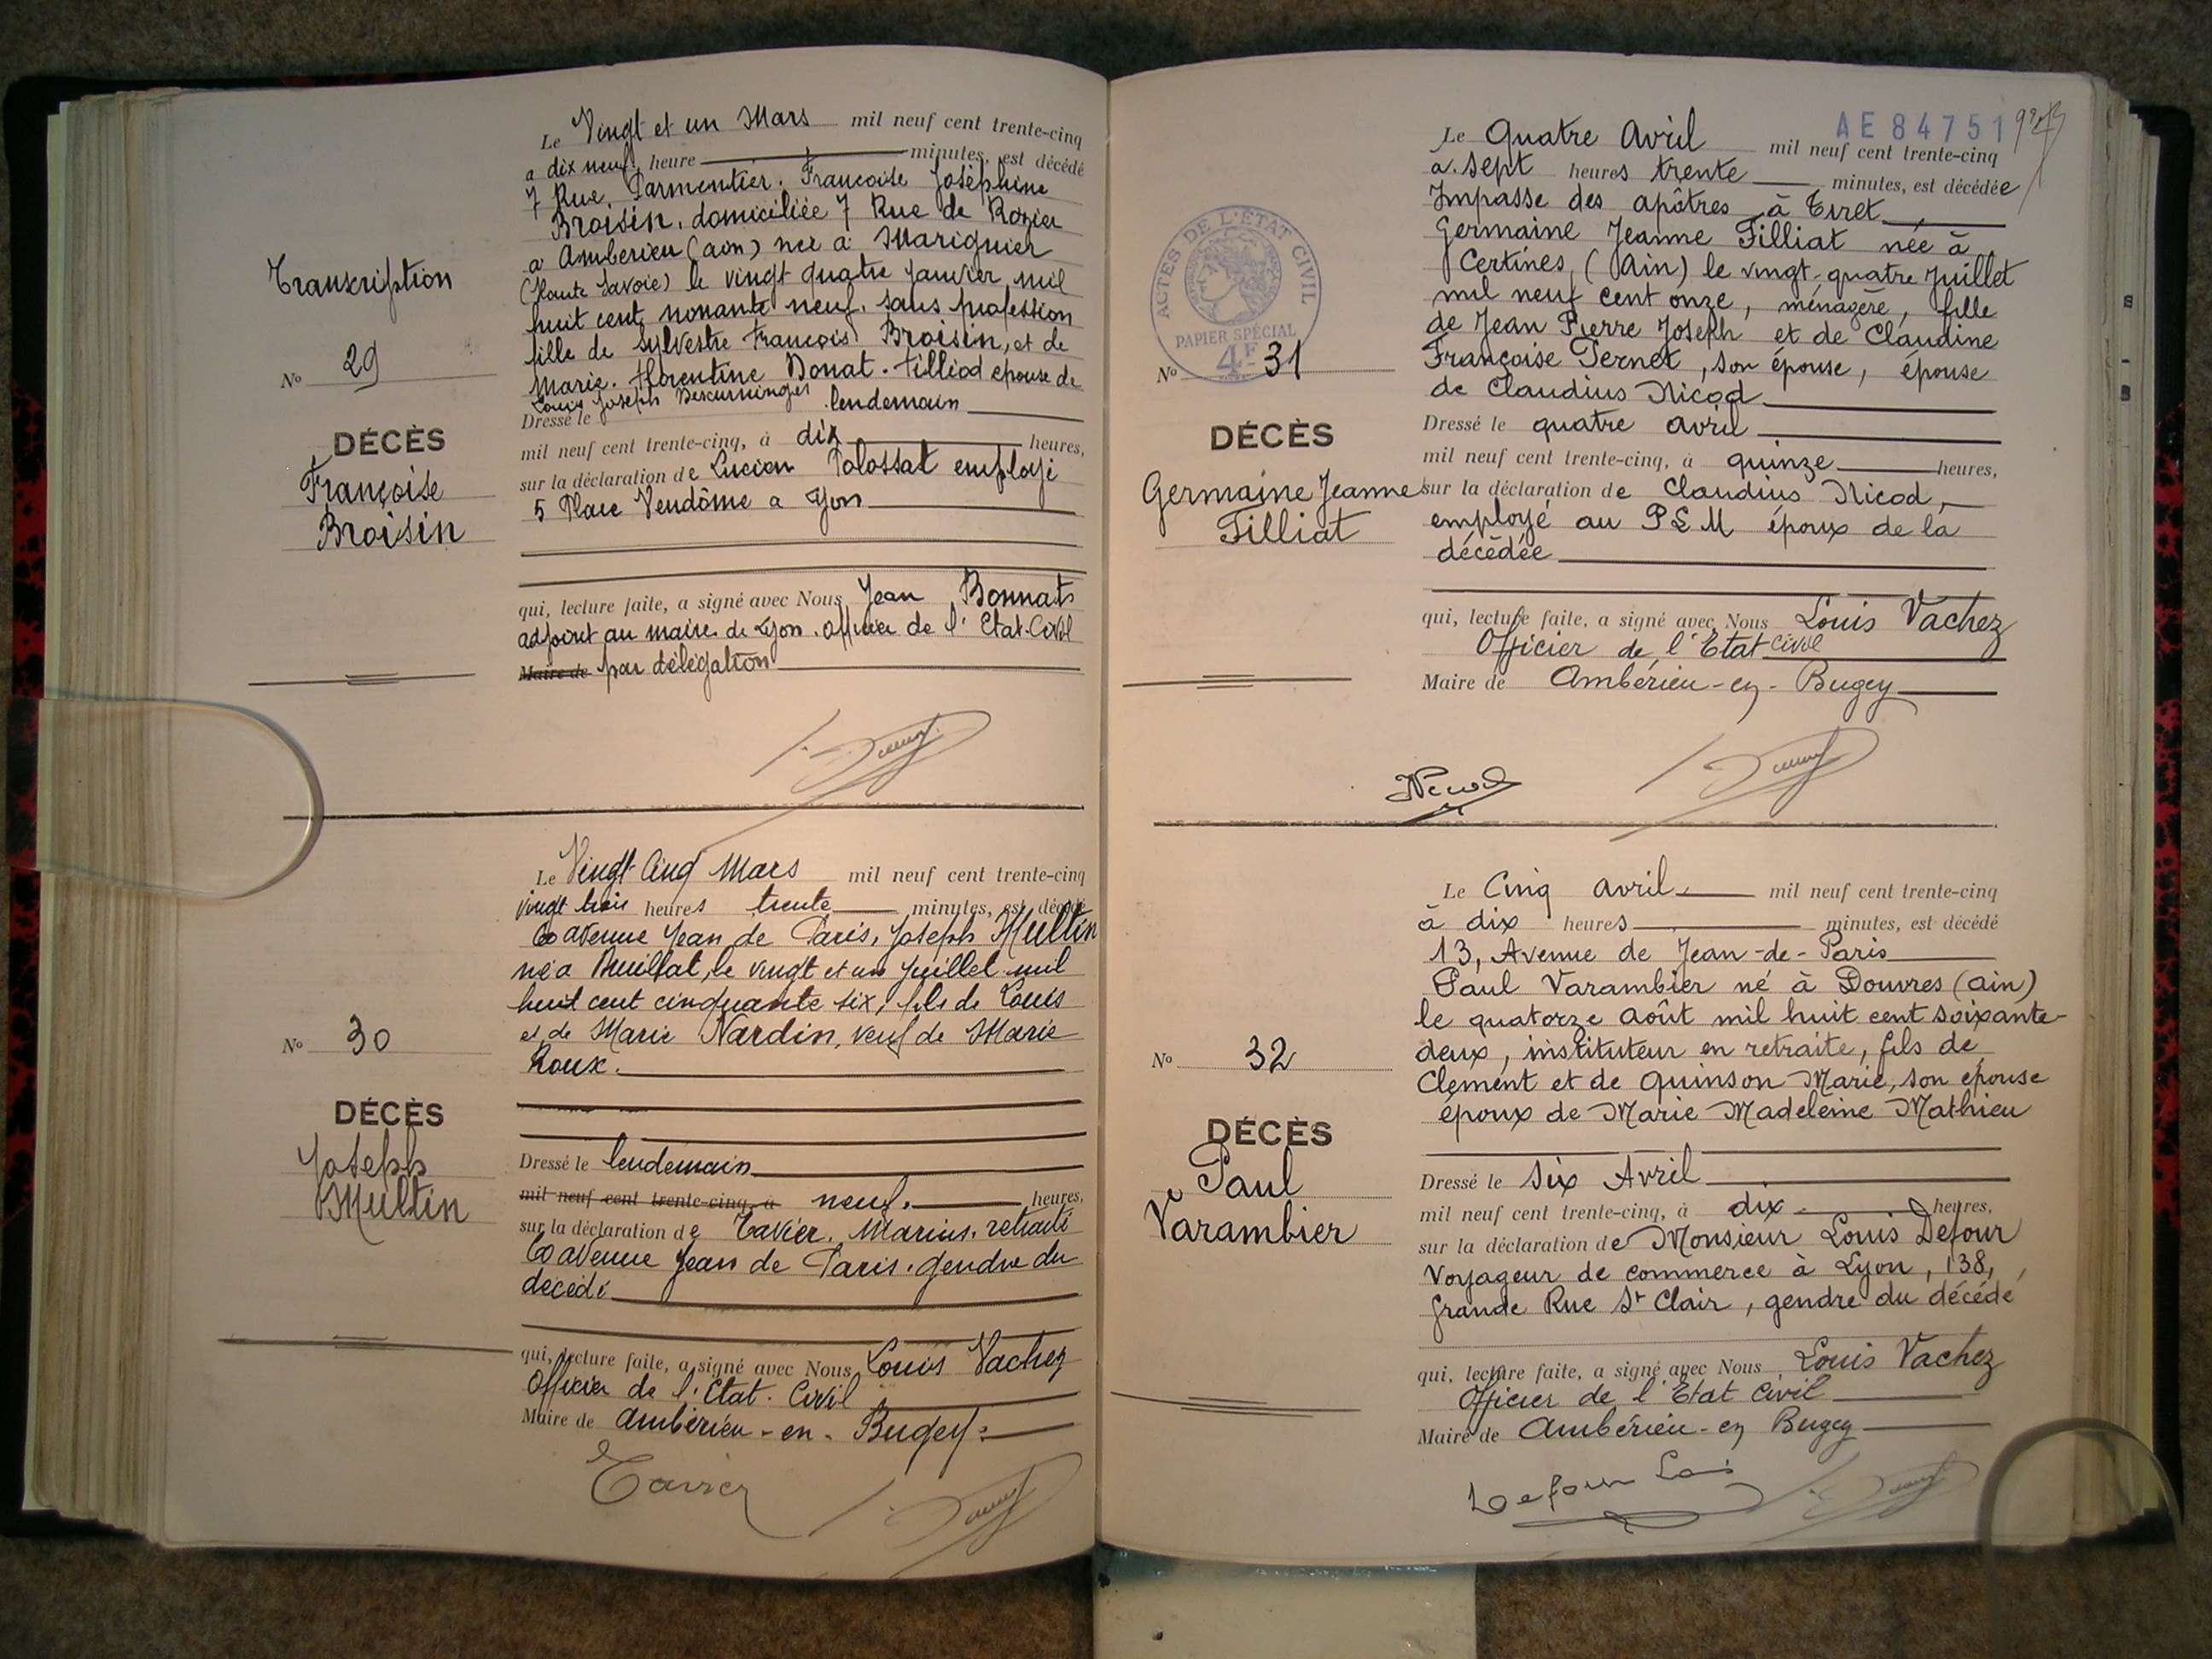 Transcription
No 29
DÉCÈS
Françoise
Broisin
Le Vingt et un Mars mil neuf cent trente-cinq
a dix neuf heure minutes, est décédé
7 Rue Parmentier. Francoise Joséphine
Broisin, domiciliée 7 Rue de Rozier
a Amberieu (ain) née a Marignier
(Haute Savoie) le vingt quatre janvier mil
huit cent nonante neuf. sans profession
fille de Sylvestre François Broisin, et de
Marie. Florentine Donat. tilliod epouse de
Louis Joseph
Dressé le lendemain
mil neuf cent trente-cinq, à dix heures,
sur la déclaration de Lucien Polossat employé
5 Place Vendôme a Lyon
qui, lecture faite, a signé avec Nous Jean Bonnat
adjoint au maire de Lyon. officier de l' Etat-Civil
Maire de par délégation
No 30
DÉCÈS
Joseph
Multin
Le Vingt Cinq Mars mil neuf cent trente-cinq
vingt trois heures trente minutes, est décédé
60 avenue Jean de Paris, Joseph Multin
né a Druillat, le vingt et un Juillet mil
huit cent cinquante six, fils de Louis
et de Marie Nardin, veuf de Marie
Roux.
Dressé le lendemain
mil neuf cent trente-cinq, à neuf. heures,
sur la déclaration de Tavier. Marius. retraité
60 avenue Jean de Paris. gendre du
décédé
qui, lecture faite, a signé avec Nous Louis Vachez
Officier de l'Etat. Civil
Maire de Ambérieu-en-Bugey.
Tavier
AE 84751
ACTES DE L'ÉTAT CIVIL
PAPIER SPÉCIAL
4F
No 31
DÉCÈS
Germaine Jeanne
Filliat
Le Quatre Avril mil neuf cent trente-cinq
a. sept heures trente minutes, est décédée
Impasse des apôtres à Tiret
Germaine Jeanne Filliat née à
Certines, (Ain) le vingt-quatre Juillet
mil neuf cent onze, ménagère, fille
de Jean Pierre Joseph et de Claudine
Françoise Pernet, son épouse, épouse
de Claudius Nicod
Dressé le quatre avril
mil neuf cent trente-cinq, à quinze heures,
sur la déclaration de Claudius Nicod,
employé au P L M époux de la
décédée
qui, lecture faite, a signé avec Nous Louis Vachez
Officier de l'Etat Civil
Maire de Ambérieu-en-Bugey
Nicod
No 32
DÉCÈS
Paul
Varambier
Le Cinq avril mil neuf cent trente-cinq
à dix heures minutes, est décédé
13, Avenue de Jean-de-Paris
Paul Varambier né à Douvres (ain)
le quatorze Août mil huit cent soixante-
deux, instituteur en retraite, fils de
Clément et de Quinson Marie, son épouse
époux de Marie Madeleine Mathieu
Dressé le Six Avril
mil neuf cent trente-cinq, à dix heures,
sur la déclaration de Monsieur Louis Defour
Voyageur de commerce à Lyon, 138,
Grande Rue St Clair, gendre du décédé
qui, lecture faite, a signé avec Nous Louis Vachez
Officier de l'Etat Civil
Maire de Ambérieu-en Bugey
Defour Louis